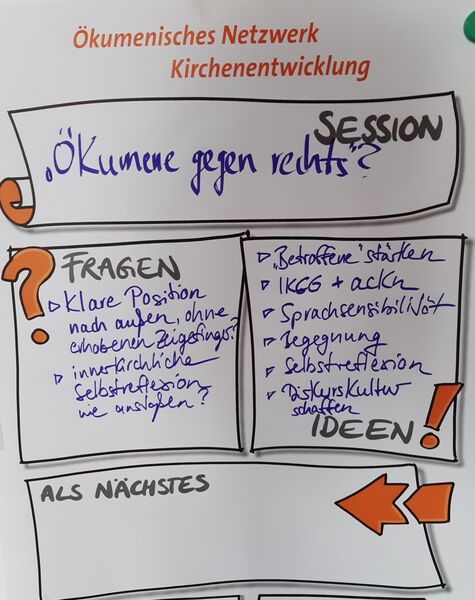 Ökumenisches Netzwerk
Kirchenentwicklung
SESSION
„Ökumene gegen rechts“?
FRAGEN
▷ Klare Position
nach außen, ohne
erhobenen Zeigefinger?
▷ innerkirchliche
Selbstreflexion
wie anstoßen?
▷ „Betroffene“ stärken
▷ IKCG + ackn
▷ Sprachsensibilität
▷ Begegnung
▷ Selbstreflexion
▷ Diskurskultur
schaffen
IDEEN
ALS NÄCHSTES